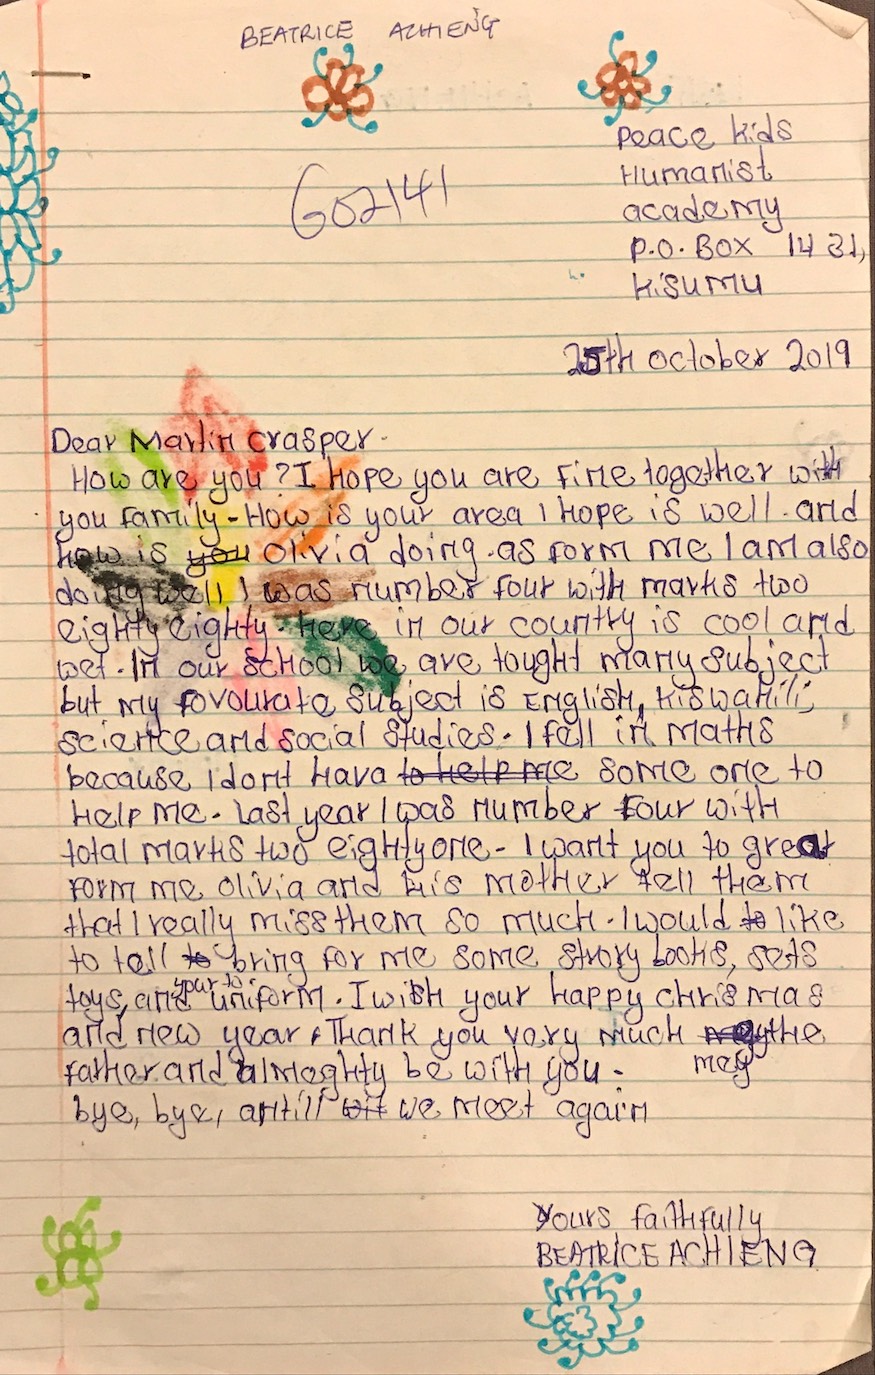 BEATRICE ACHIENG
G02141
Peace Kids
Humanist
academy
P.O. BOX 1431,
Kisumu
25th october 2019
Dear Martin crasper.
How are you? I hope you are fine together with
you family - How is your area I hope is well. and
how is you Olivia doing. as form me I am also
doing well I was number four with marks two
eighty eighty. here in our country is cool and
wet. In our school we are tought many subject
but my fovourate subject is English, Kiswahili,
science and social studies. I fell in maths
because I dont hava to help me some one to
help me. last year I was number four with
total marks two eighty one - I want you to great
form me Olivia and his mother tell them
that I really miss them so much. I would to like
to tell to bring for me some strory books, sets
toys, and your to uniform. I wish your happy chrismas
and new year, Thank you vary much the
father and almeghty be with you. may
bye, bye, antill we meet again
Yours faithfully
BEATRICE ACHIENG